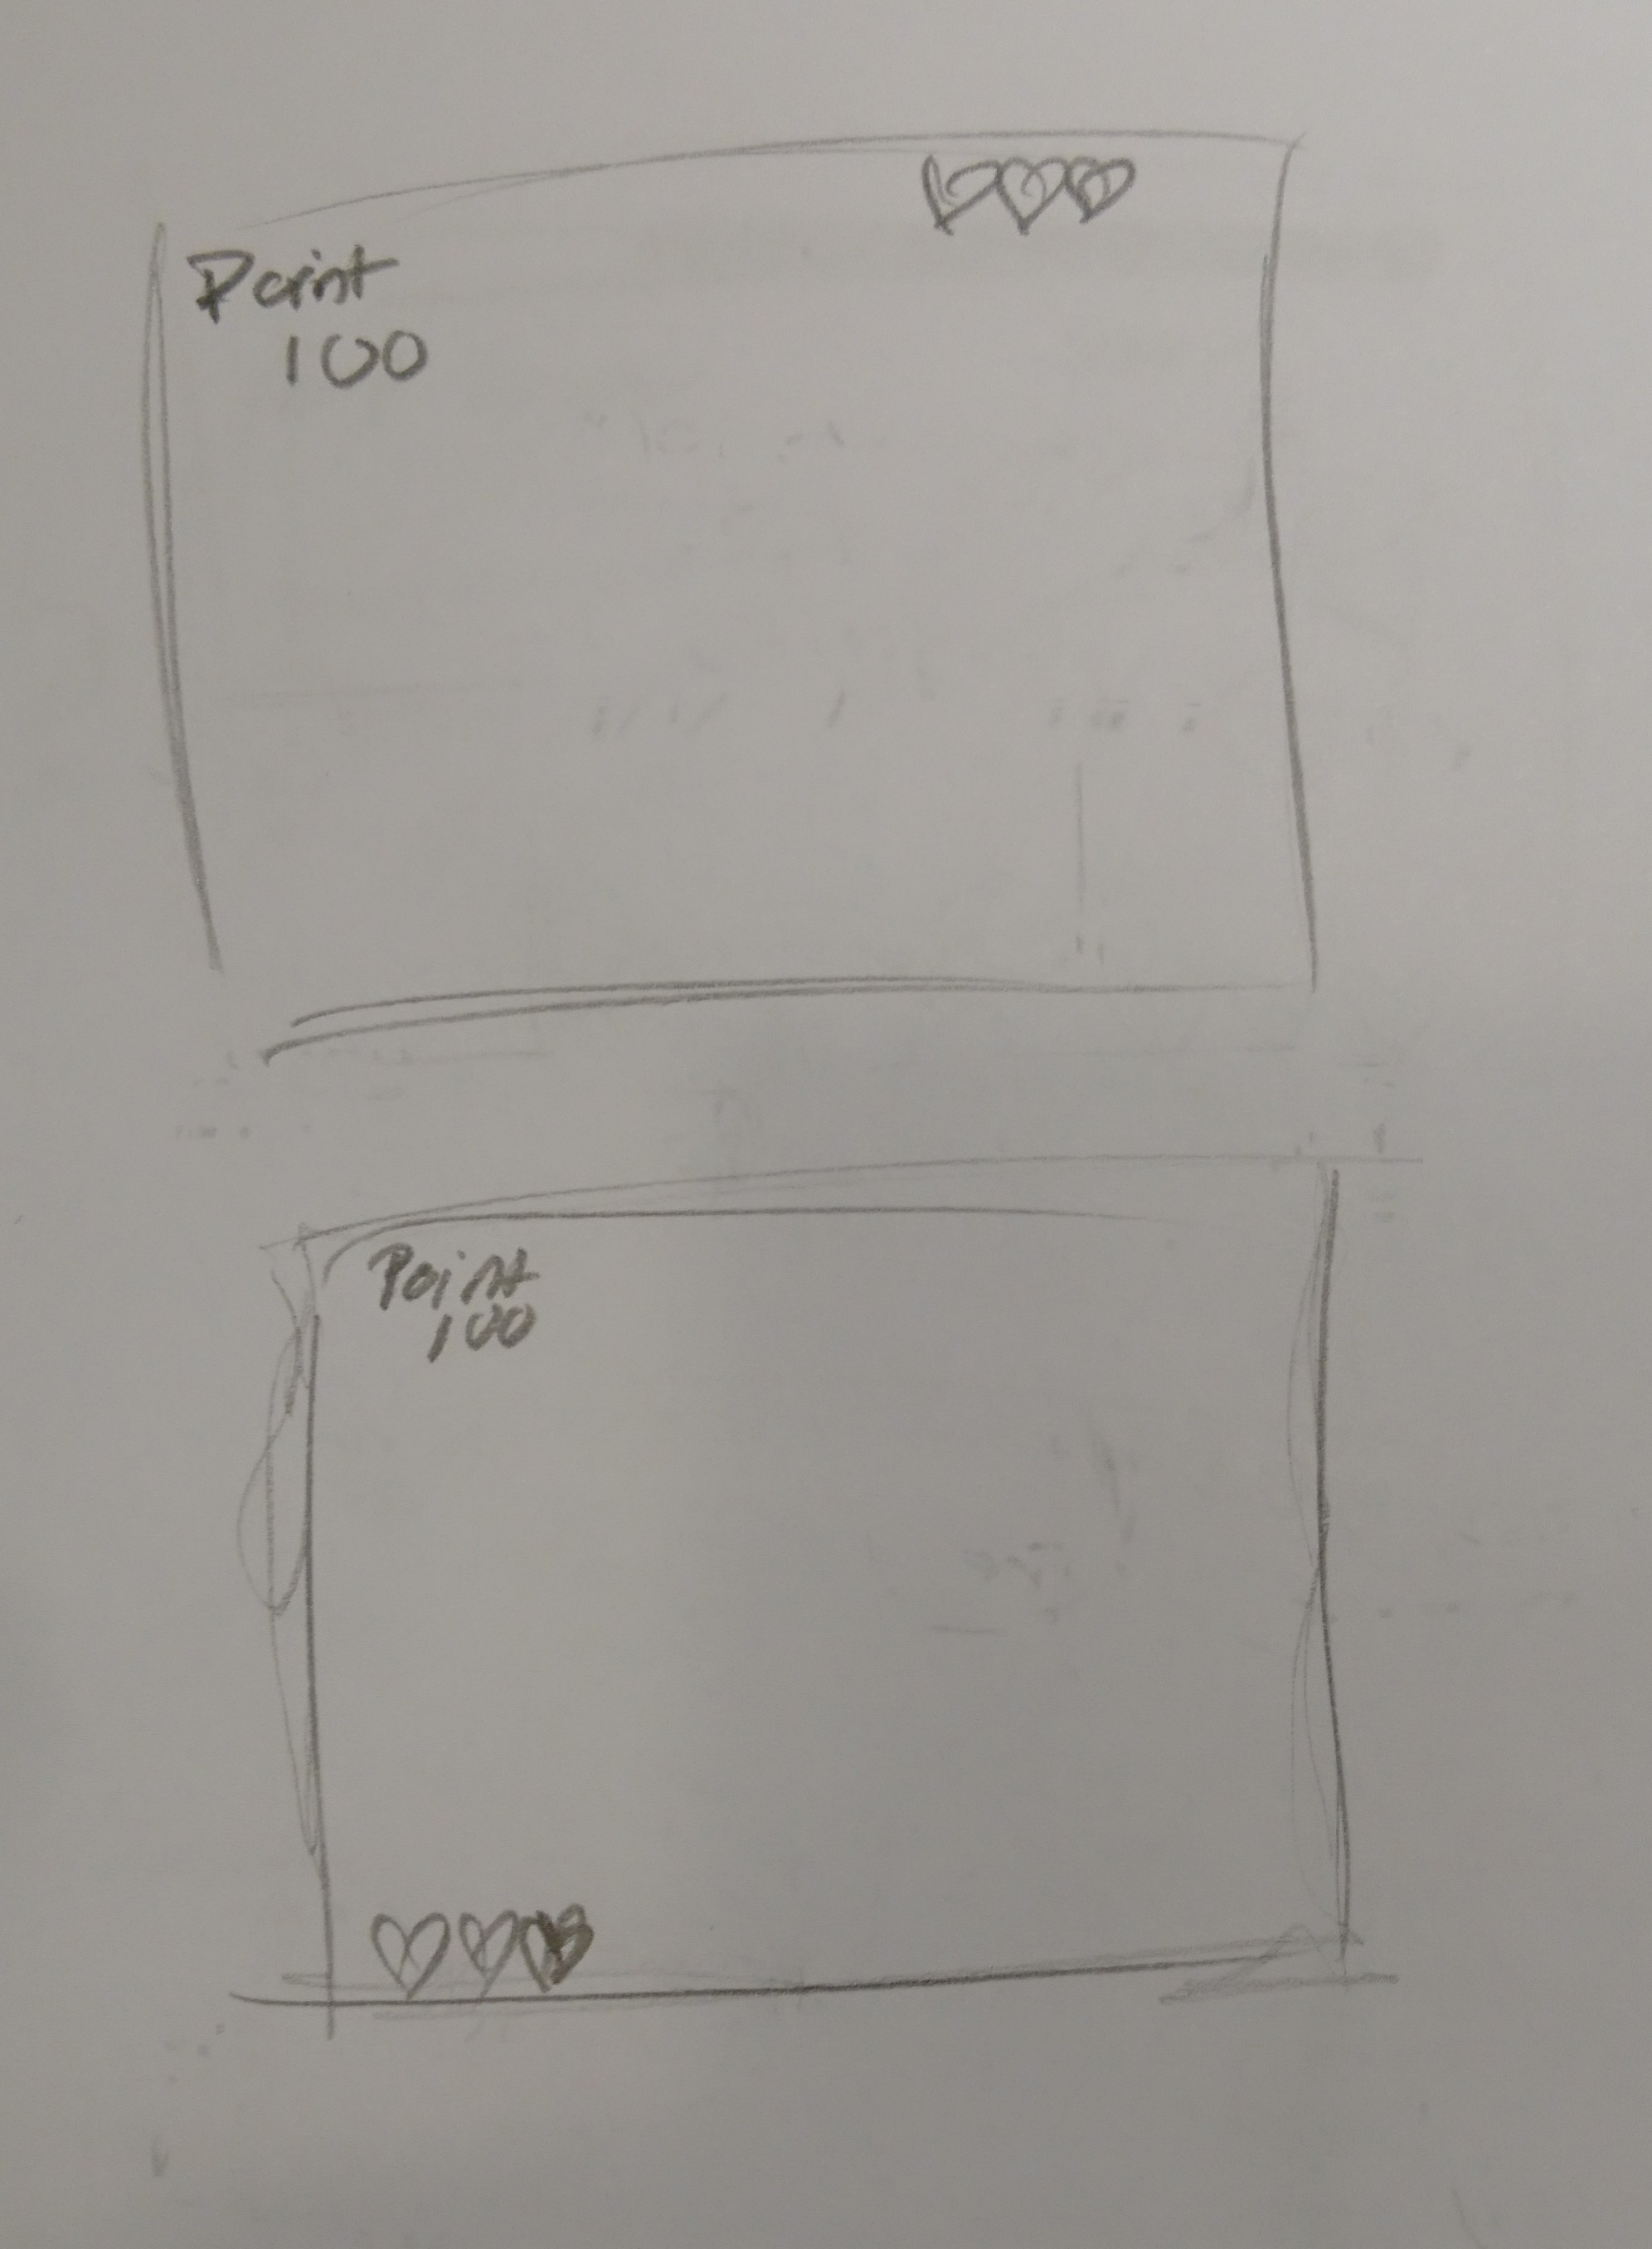 Point
100
Point
100